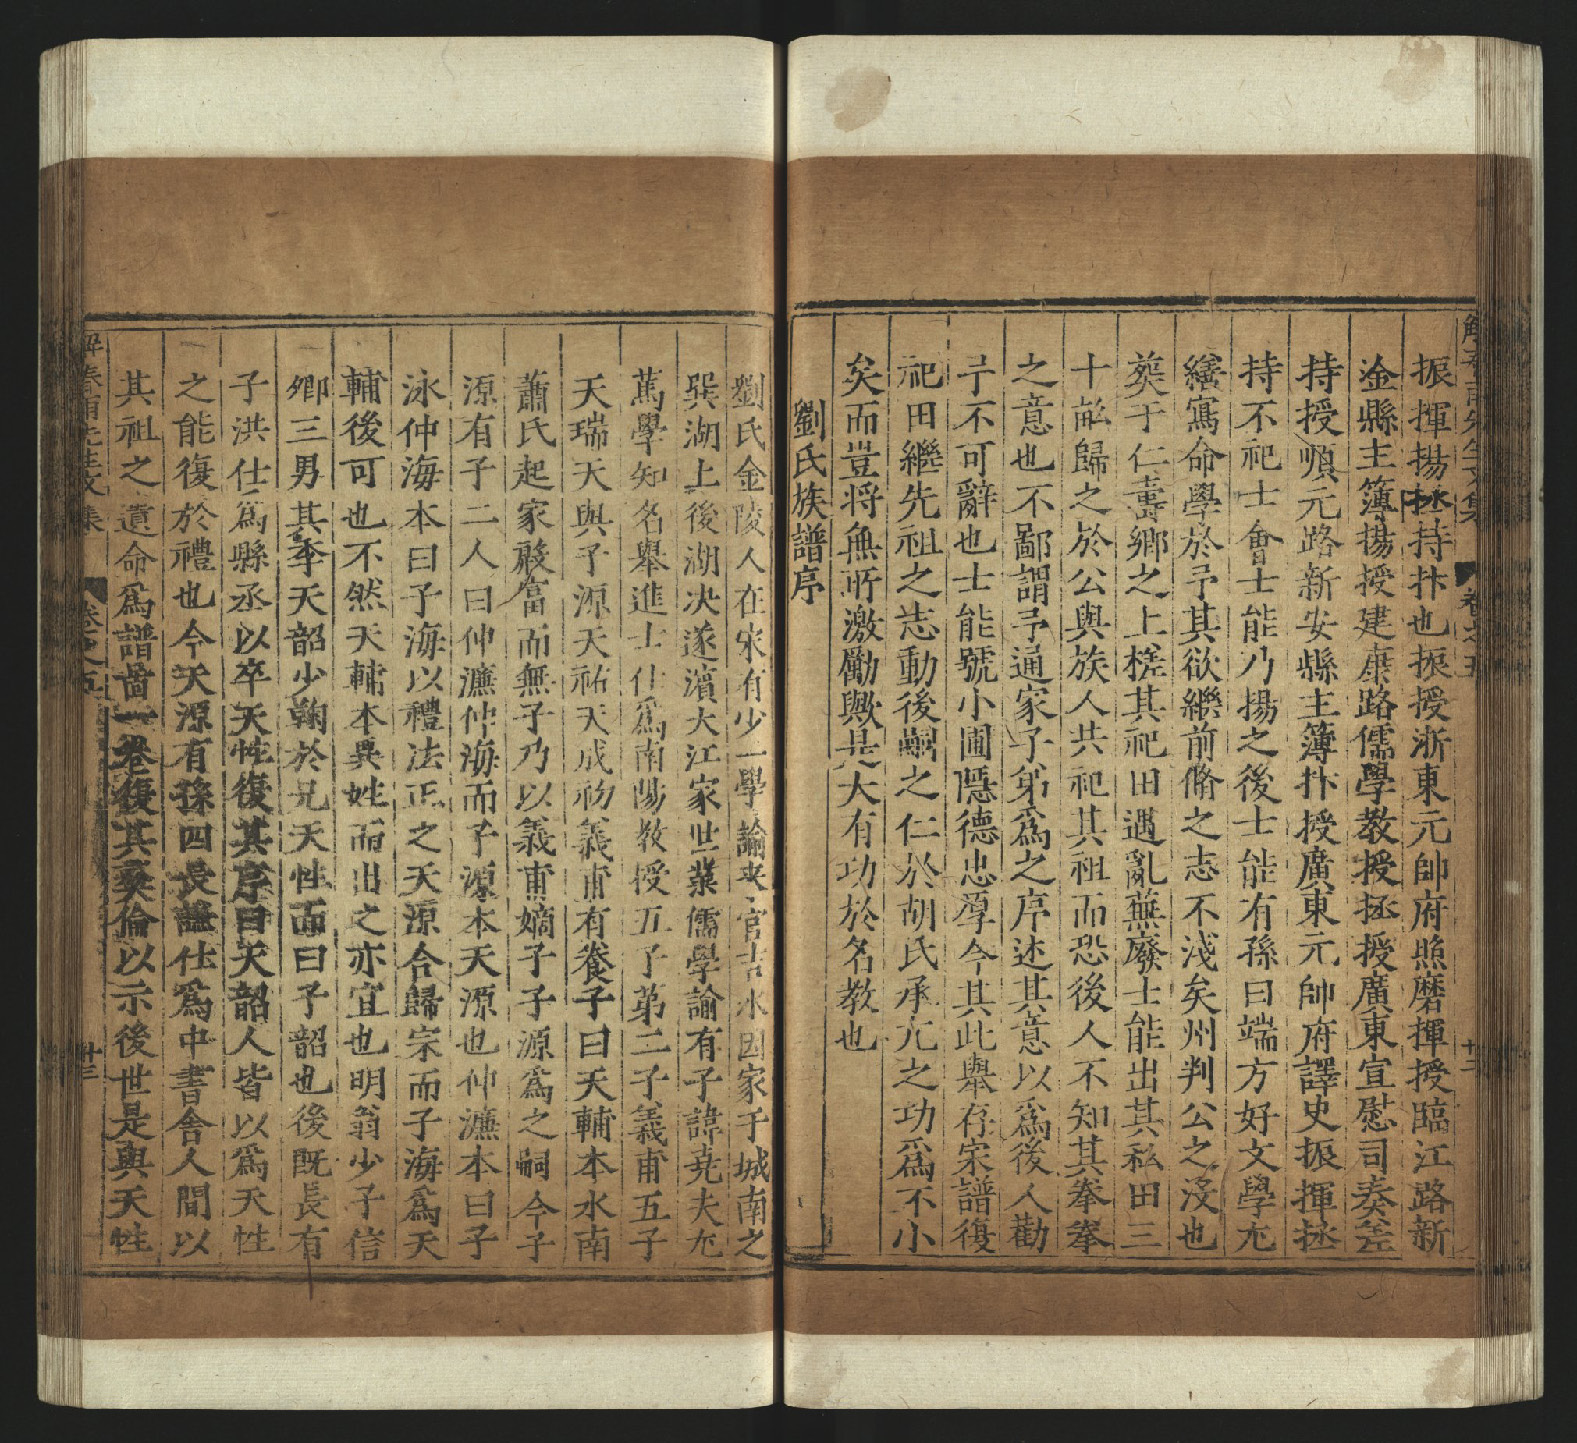 振揮揚拯持抃也振授浙東元帥府照磨揮授臨江路新
淦縣主簿揚授建康路儒學教授拯授廣東宣慰司奏差
持授順元路新安縣主簿抃授廣東元帥府譯史振揮拯
持不祀士會士能乃揚之後士能有孫曰端方好文學尤
繕寫命學於予其欲繼前脩之志不淺矣州判公之没也
葬于仁壽鄉之上槎其祀田遇亂蕪廢士能出其私田三
十畝歸之於公與族人共祀其祖而恐後人不知其拳拳
之意也不鄙謂予通家子第爲之序述其意以爲後人勸
予不可辭也士能號小圃隱德忠厚今其此舉存宋譜復
祀田繼先祖之志動後嗣之仁於胡氏承亢之功爲不小
矣而豈将無所激勵歟是大有功於名教也
劉氏族譜序
劉氏金陵人在宋有少一學諭來官吉水因家于城南之
巽湖上後湖決遂濱大江家世業儒學諭有子諱堯夫尤
篤學知名舉進士仕爲南陽教授五子第二子義甫五子
天瑞天與子源天祐天成初義甫有養子曰天輔本水南
蕭氏起家嚴富而無子乃以義甫嫡子子源爲之嗣今子
源有子二人曰仲濂仲海而子源本天源也仲濂本曰子
泳仲海本曰子海以禮法正之天源合歸宗而子海爲天
輔後可也不然天輔本異姓而出之亦宜也明翁少子信
卿三男其季天韶少鞠於兄天性而曰子韶也後既長有
子洪仕爲縣丞以卒天性復其序曰天韶人皆以爲天性
之能復於禮也今天源有孫四長謙仕爲中書舍人間以
其祖之遺命爲譜啚一卷復其彜倫以示後世是與天性
解春雨先生文集 卷之五 十三